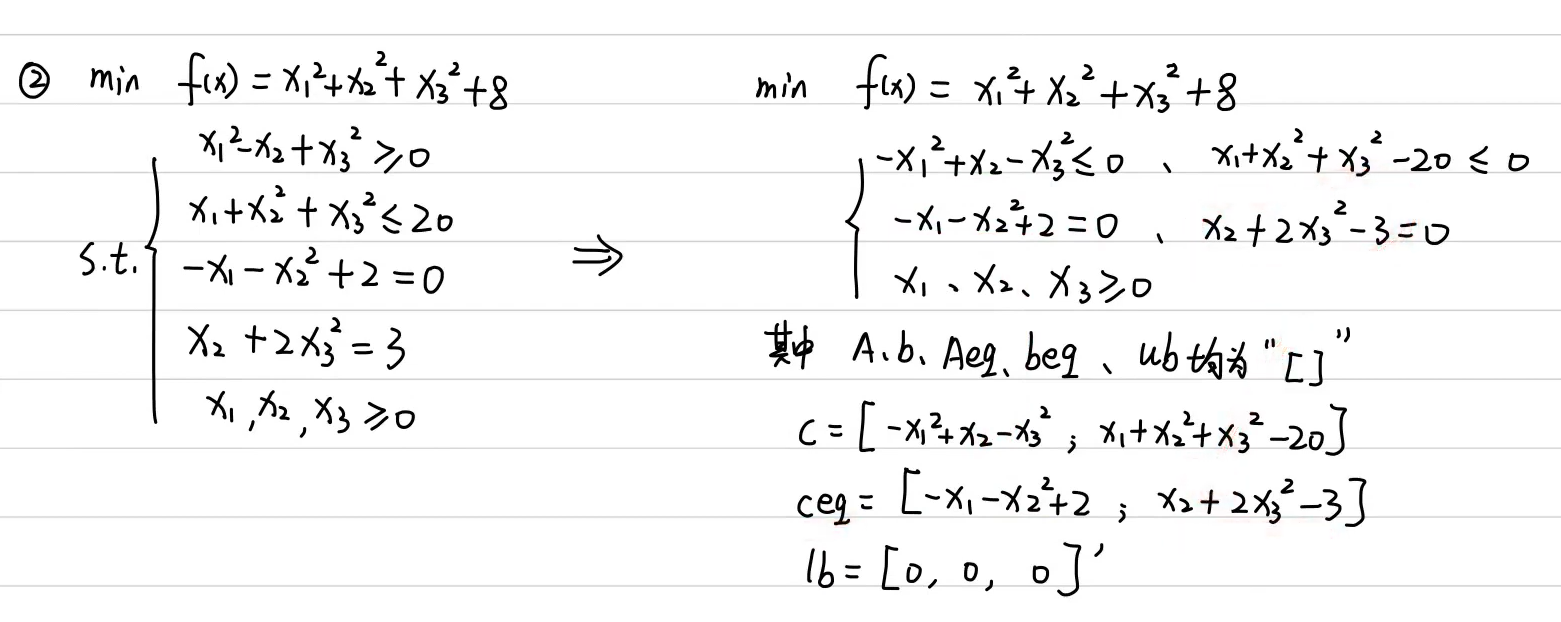 ② min f(x) = x₁²+x₂²+x₃²+8
x₁²-x₂+x₃² ≥ 0
x₁+x₂²+x₃² ≤ 20
s.t.
-x₁-x₂²+2=0
x₂+2x₃²=3
x₁,x₂,x₃ ≥ 0
⇒
min f(x) = x₁²+x₂²+x₃²+8
-x₁²+x₂-x₃² ≤ 0 、 x₁+x₂²+x₃²-20 ≤ 0
-x₁-x₂²+2=0 、 x₂+2x₃²-3=0
x₁、x₂、x₃ ≥ 0
其中 A.b.Aeq、beq、ub均为"[]"
c=[-x₁²+x₂-x₃² ; x₁+x₂²+x₃²-20]
ceq=[-x₁-x₂²+2 ; x₂+2x₃²-3]
lb=[0, 0, 0]'